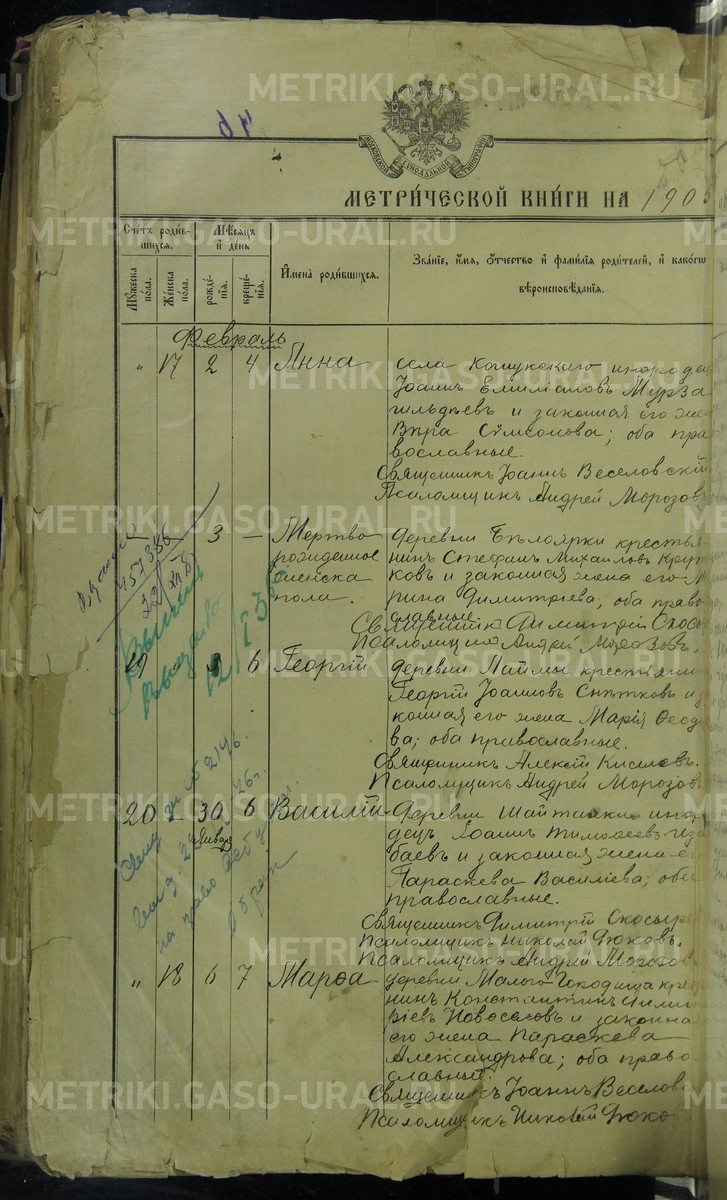 METRIKI.GASO-URAL.RU
МОСКОВСКОЙ СѴНОДАЛЬНОЙ ТИПОГРАФІИ
МЕТРИ́ЧЕСКОЙ КНИ́ГИ НА 1905
Сче́тъ роди́в-
шихся.
Мѣ́сяцъ
и҆ де́нь
Имена̀ роди́вшихся.
Зва́ніе, и҆́мя, ѻ҆́тчество и҆ фами́лія роди́телей, и҆ како́гѡ
вѣроисповѣ́данія.
Му́жеска
по́ла.
Же́нска
по́ла.
рожде́-
нія.
креще́-
нія.
Февраль
" 17 2 4 Анна
села Кошукскаго инород
Іоаннъ Емиліановъ Мурза
гильдѣевъ и законная его жен
Вѣра Сѵмеонова; оба пра
вославные.
Священникъ Іоаннъ Веселовскій
Псаломщикъ Андрей Морозовъ
3 — Мертво
рожденное
женска
пола.
деревни Бѣлоярки крестья
нинъ Стефанъ Михаиловъ Крут
ковъ и законная жена его М
рина Димитріева; оба право
славные.
Священникъ Димитрій Скос
Псаломщикъ Андрей Морозовъ.
19 " 3 6 Георгій
деревни Паймы крестьянин
Георгій Іоанновъ Снѣтковъ и з
конная его жена Марія Ѳеод
ва; оба православные.
Священникъ Алексій Киселевъ.
Псаломщикъ Андрей Морозовъ
20 — 30 6 Василій
Января
деревни Шайтанки ино
децъ Іоаннъ Тимоѳеевъ
баевъ и законная жена е
Параскева Василіева; оба
православные.
Священникъ Димитрій Скосыре
Псаломщикъ Николай Дюковъ.
Псаломщикъ Андрей Морозов
" 18 6 7 Марѳа
деревни Малаго Городища кре
нинъ Константинъ Дими
ріевъ Новоселовъ и законна
его жена Параскева
Александрова; оба право
славный.
Священникъ Іоаннъ Веселов
Псаломщикъ Николай Дюков
457386